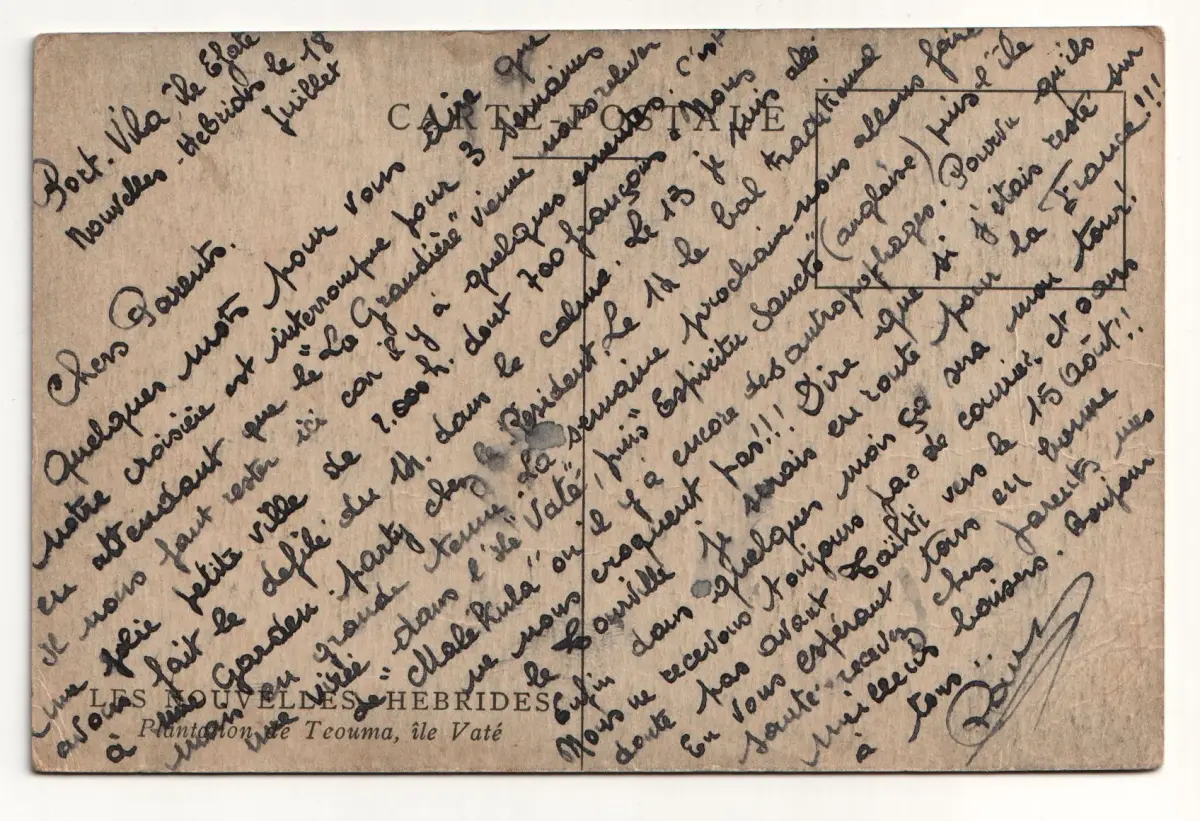 CARTE-POSTALE
Port-Vila île Efate
Nouvelles-Hébrides le 18
Juillet
Chers Parents.
Quelques mots pour vous dire que
notre croisière est interrompue pour 3 semaines
en attendant que le "La Grandière" vienne nous relever
il nous faut rester ici car il y à quelques emeutes. C'est
une jolie petite ville de 2.000 h. dont 700 français. Nous
avons fait le defilé du 14. dans le calme. Le 13 je suis allé
à une Garden-party chez le Résident. Le 14 le bal traditionnel
mais en grande tenue. La semaine prochaine nous allons faire
une virée dans l'île "Vaté", puis "Espiritu Sancto" (anglaise) puis l'île
de "MaleKula" où il y a encore des antropophages. Pourvu qu'ils
ne nous croquent pas!!! Dire que si j'étais resté sur
le Tourville je serais en route pour la France!!!
Enfin dans quelques mois se sera mon tour!
Nous ne recevons toujours pas de courrier, et sans
doute pas avant Taïhti vers le 15 Août!!
En vous espérant tous en bonne
santé recevez chers parents mes
meilleurs baisers. Bonjour
à tous..
LES NOUVELLES HEBRIDES
Plantation de Teouma, île Vaté